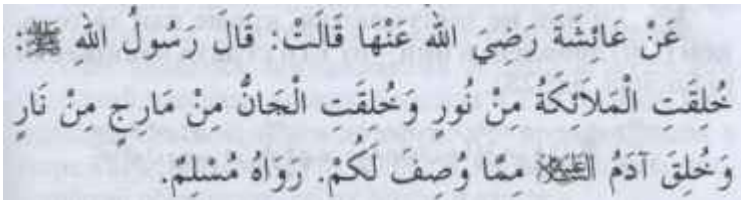 عَنْ عَائِشَةَ رَضِيَ اللهُ عَنْهَا قَالَتْ: قَالَ رَسُولُ اللهِ ﷺ:
خُلِقَتِ الْمَلَائِكَةُ مِنْ نُورٍ وَخُلِقَتِ الْجَانُّ مِنْ مَارِجٍ مِنْ نَارٍ
وَخُلِقَ آدَمُ الطَّيِّكْلَا مِمَّا وُصِفَ لَكُمْ. رَوَاهُ مُسْلِمٌ.